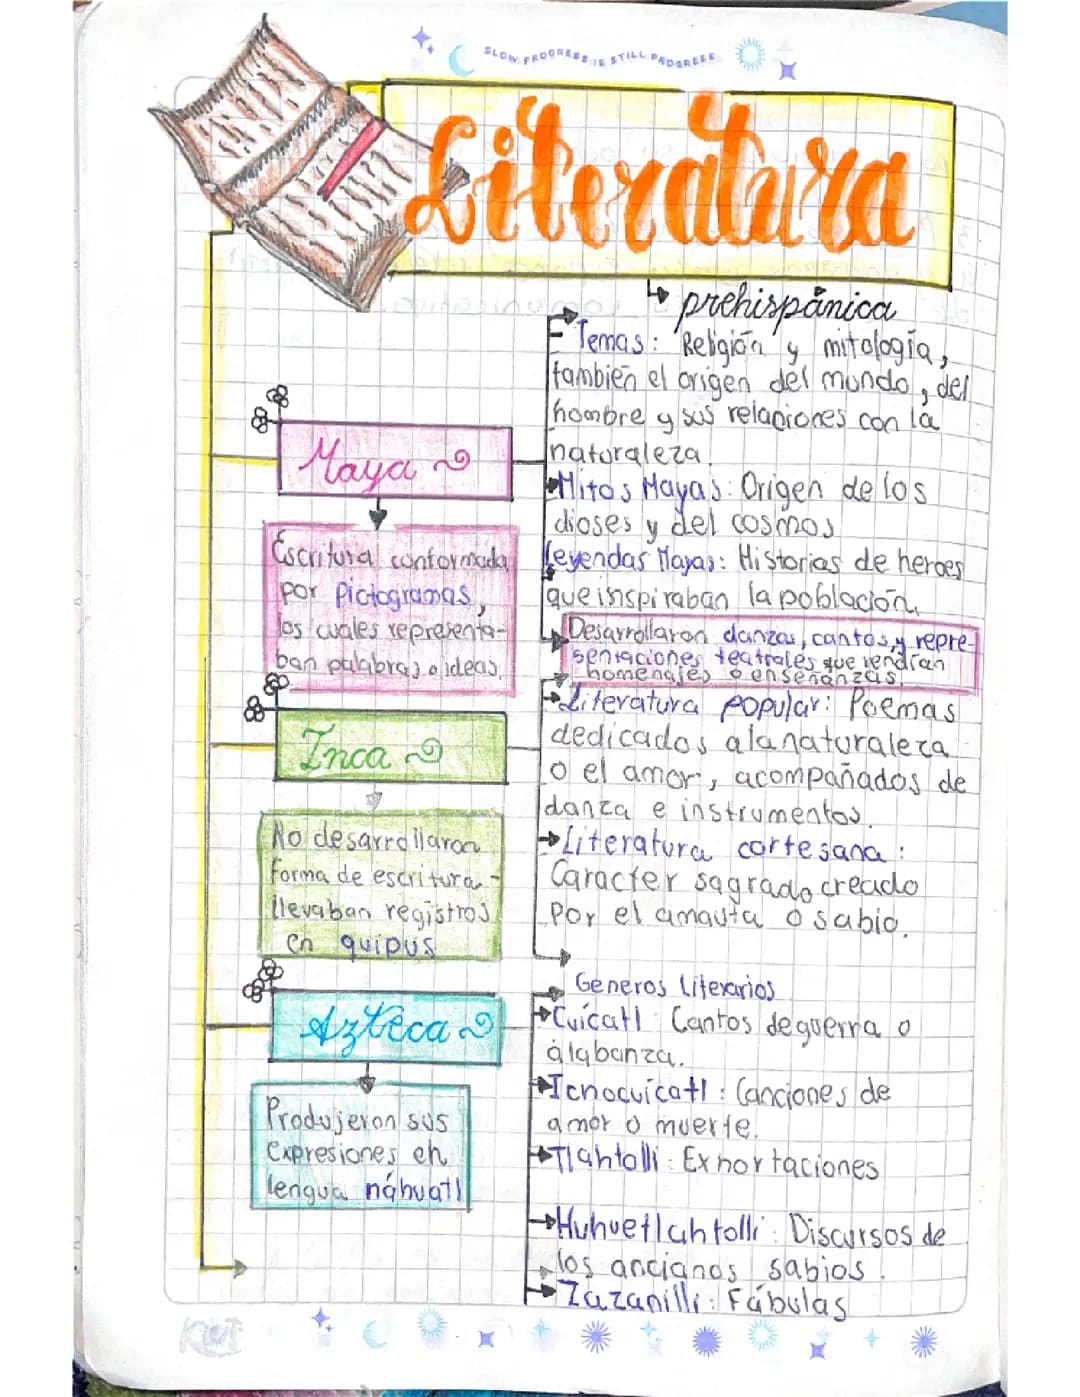 SLOW PROGRESS IS STILL PROGRESS
Literatura
prehispánica
Temas: Religión y mitología,
también el origen del mundo, del
hombre y sus relaciones con la
naturaleza.
Maya
Mitos Mayas: Origen de los
dioses y del cosmos
Escritura conformada
por Pictogramas,
los cuales representa-
ban palabras o ideas.
Leyendas Mayas: Historias de heroes
que inspiraban la población.
Desarrollaron danzas, cantos y repre-
sentaciones teatrales que rendían
homenajes o enseñanzas.
Inca
Literatura popular: Poemas
dedicados a la naturaleza
o el amor, acompañados de
danza e instrumentos.
No desarrollaron
forma de escritura -
llevaban registros
en quipus
Literatura cortesana:
Caracter sagrado creado
Por el amauta o sabio.
Azteca
Generos Literarios
Cuícatl: Cantos de guerra o
alabanza.
Icnocuícatl: Canciones de
amor o muerte.
Produjeron sus
expresiones en
lengua náhuatl
Tlahtolli: Exhortaciones
Huhuetlahtolli: Discursos de
los ancianos sabios.
Zazanilli: Fábulas